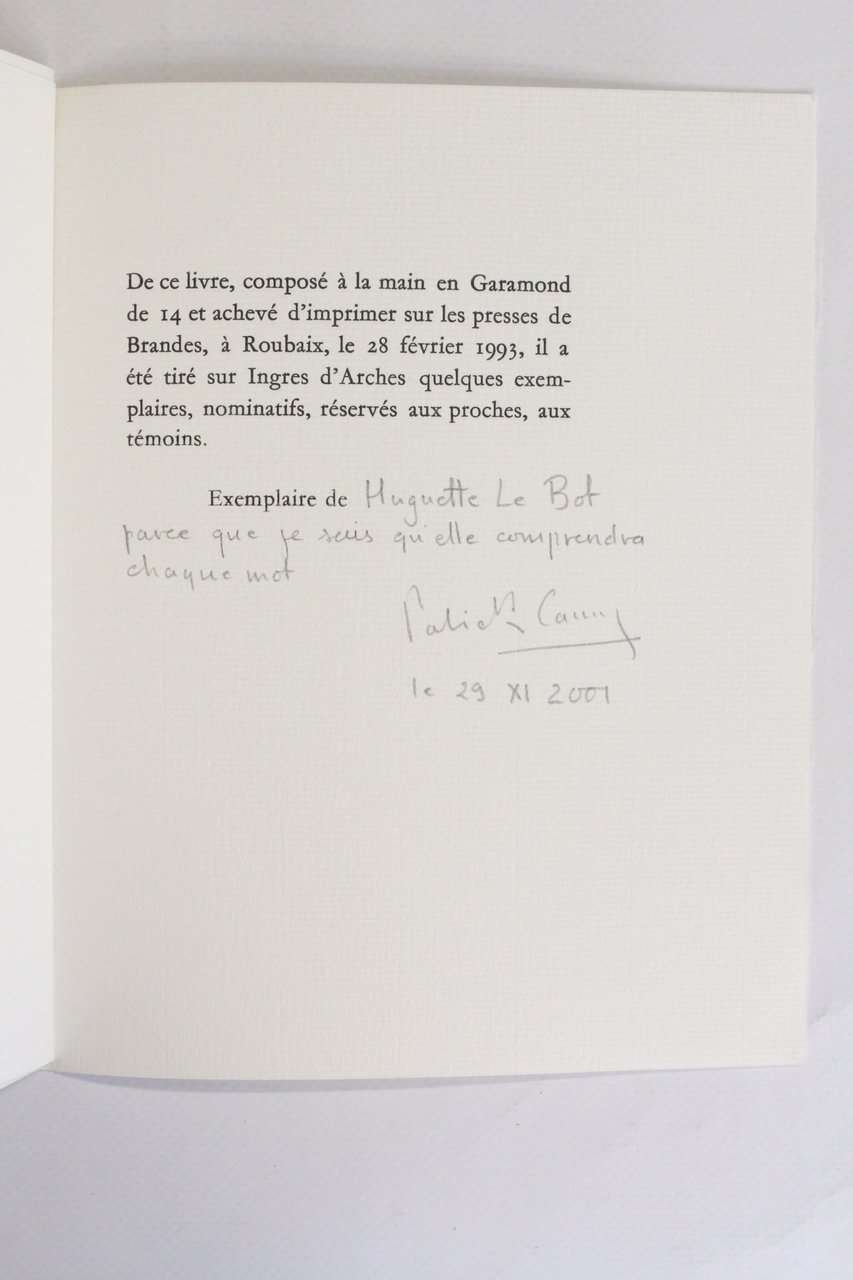 De ce livre, composé à la main en Garamond
de 14 et achevé d'imprimer sur les presses de
Brandes, à Roubaix, le 28 février 1993, il a
été tiré sur Ingres d'Arches quelques exem-
plaires, nominatifs, réservés aux proches, aux
témoins.
Exemplaire de Huguette Le Bot
parce que je sais qu'elle comprendra
chaque mot
le 29 XI 2001